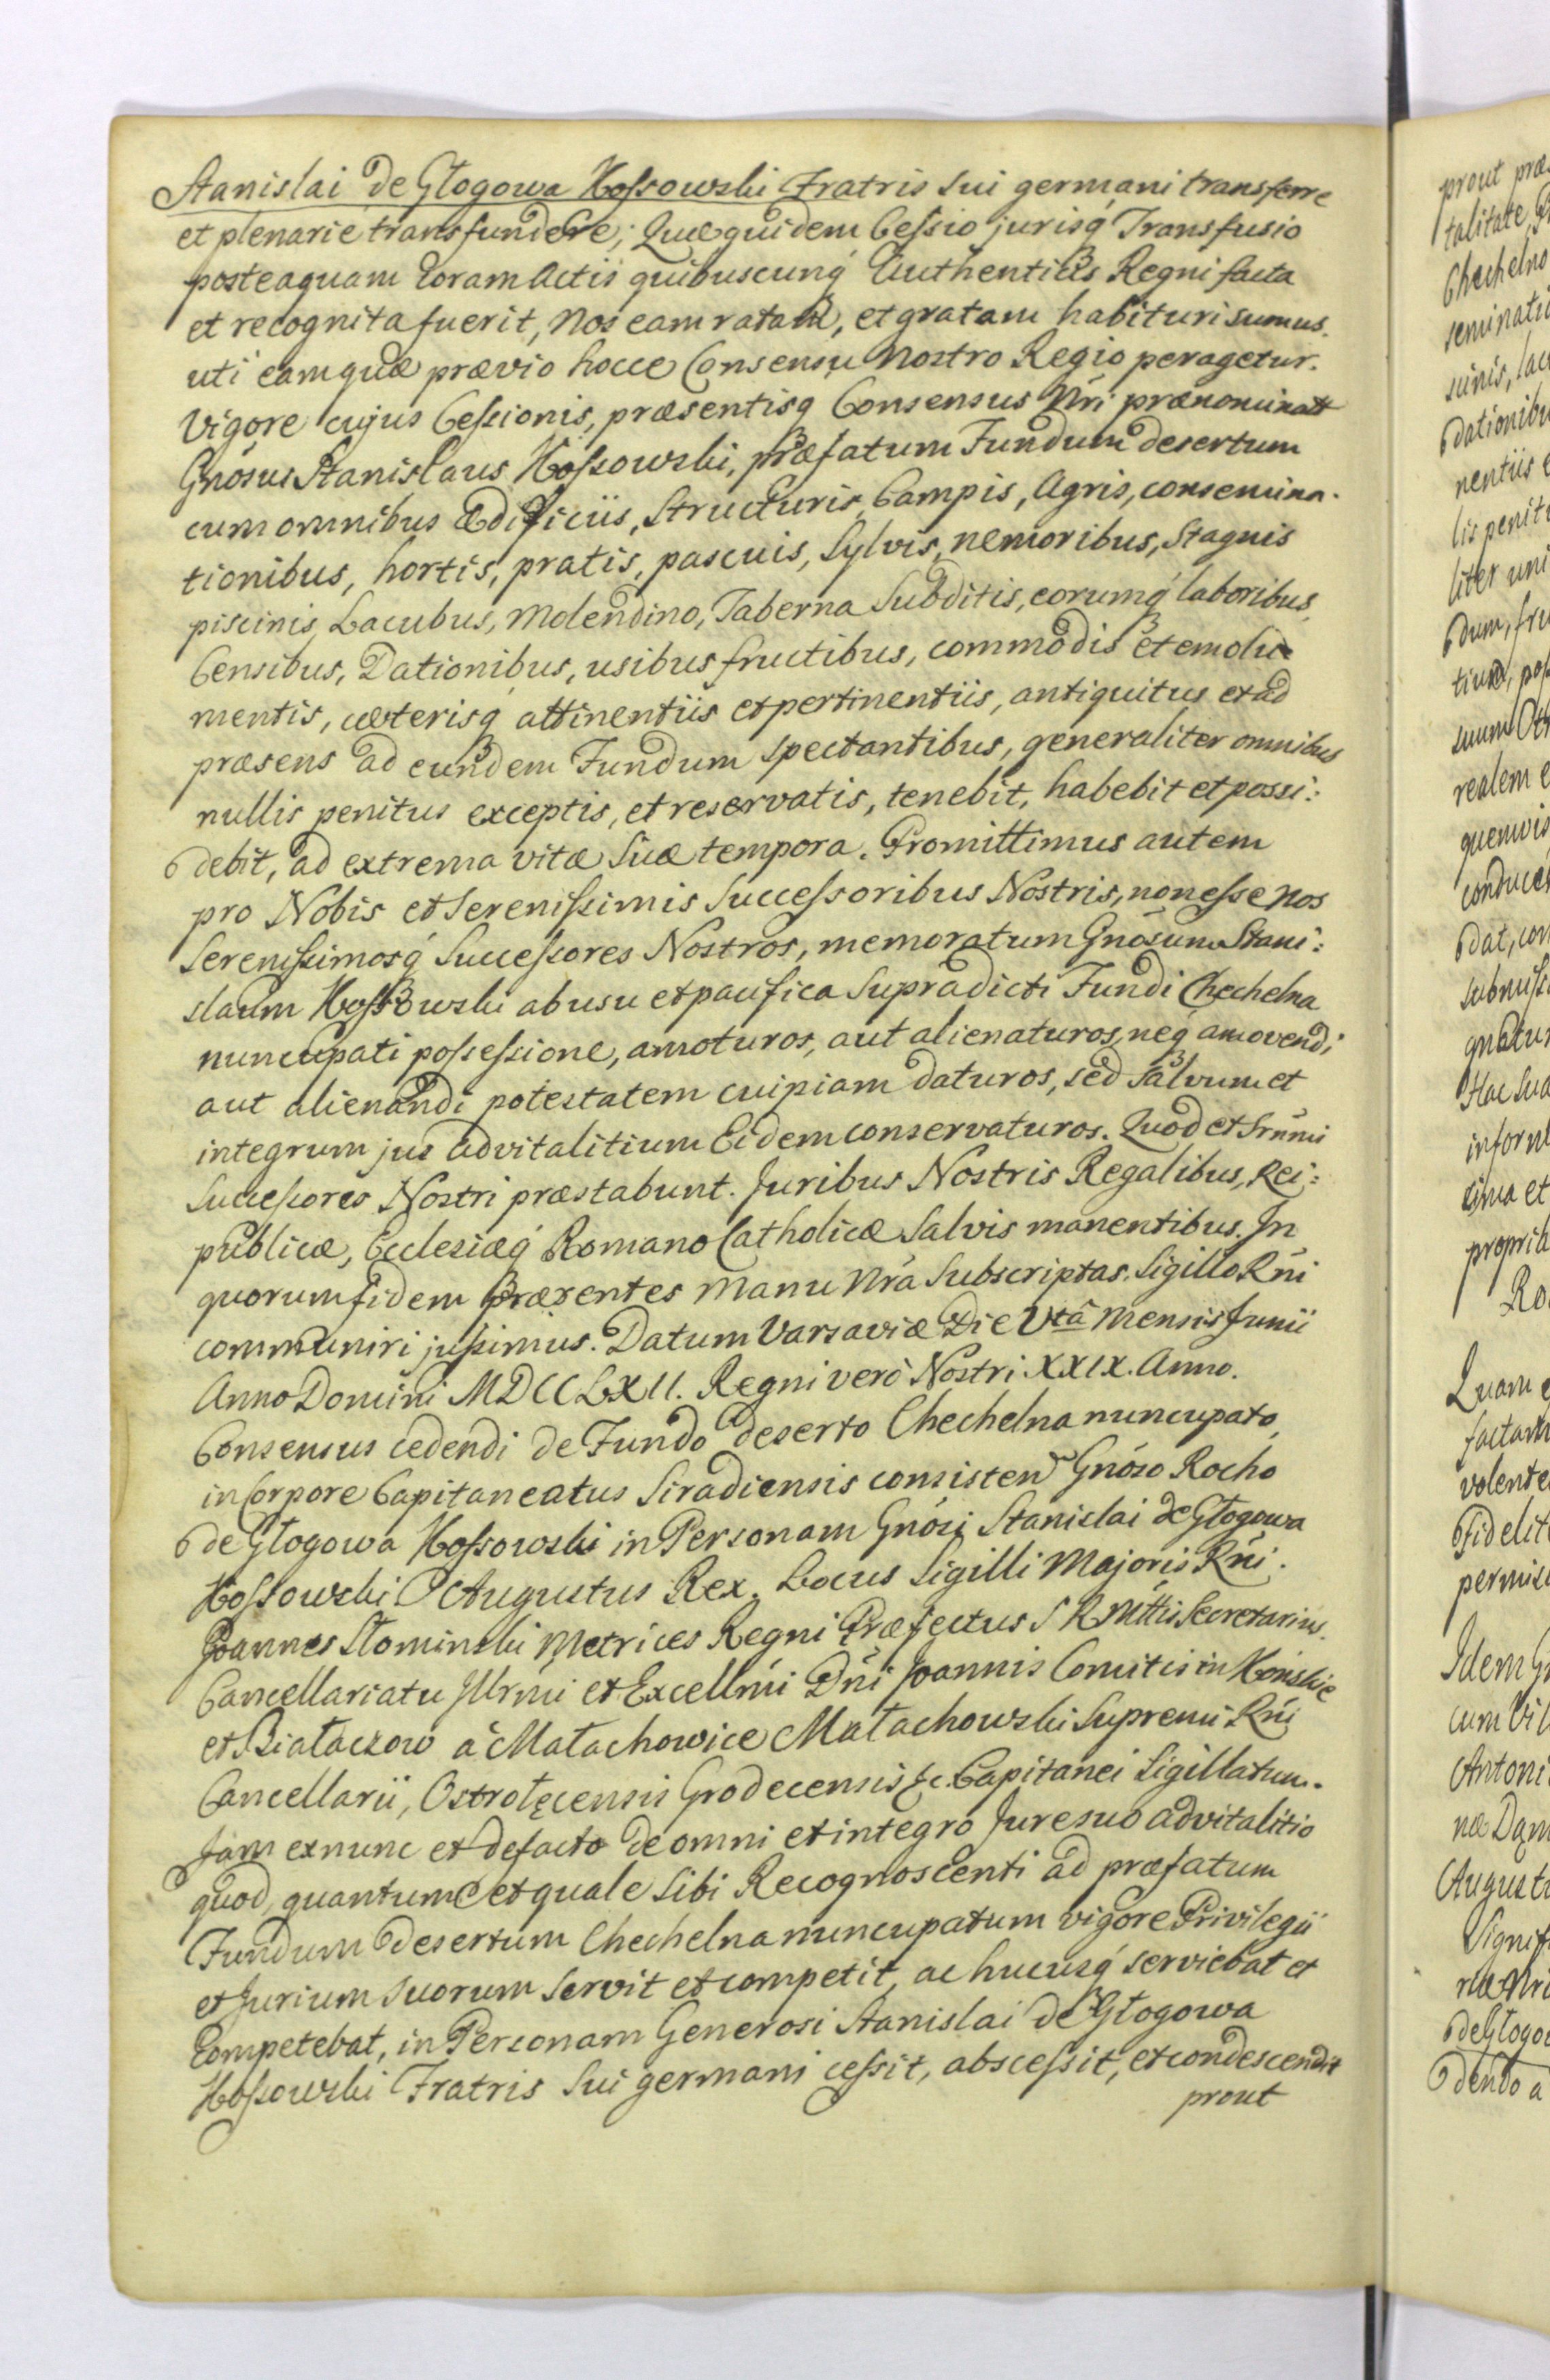 Stanislai de Głogowa Kossowski Fratris sui germani transferre
et plenarie transfundere; Quæ quidem Cessio jurisq́ Transfusio
posteaquam coram Actis quibuscunq́ Authenticis Regni facta
et recognita fuerit, Nos eam ratam, et gratam habituri sumus.
uti eam quæ prævio hocce Consensu Nostro Regio peragetur.
Vigore cujus Cessionis, præsentisq Consensus Nri prænominatt
Gnosus Stanislaus Kossowski, præfatum Fundum desertum
cum omnibus Ædificiis, Structuris, Campis, Agris, consemina-
tionibus, hortis, pratis, pascuis, Sylvis, nemoribus, Stagnis
piscinis, Lacubus, Molendino, Taberna Subditis, eorumq́ laboribus,
Censibus, Dationibus, usibus fructibus, commodis et emolu
mentis, cæterisq attinentiis et pertinentiis, antiquitus et ad
præsens ad eundem Fundum spectantibus, generaliter omnibus
nullis penitus exceptis, et reservatis, tenebit, habebit et possi:
debit, ad extrema vitæ suæ tempora. Promittimus autem
pro Nobis et Serenissimis Successoribus Nostris, non esse Nos
Serenissimosq́ Successores Nostros, memoratum Gnosum Stani:
slaum Kossowski ab usu et pacifica supradicti Fundi Chechelna
nuncupati possessione, amoturos, aut alienaturos, neq amovendi
aut alienandi potestatem cuipiam daturos, sed salvum et
integrum jus advitalitium Eidem conservaturos. Quod et Srnmi
Successores Nostri præstabunt. Juribus Nostris Regalibus, Rei:
publicæ, Ecclesiæq́ Romano Catholicæ salvis manentibus. In
quorum fidem Præsentes Manu Nra Subscriptas. Sigillo Rńi
communiri jussimus. Datum Varsaviæ Die Vtâ Mensis Junii
Anno Domini MDCCLXII. Regni verò Nostri XXIX. Anno.
Consensus cedendi de Fundo deserto Chechelna nuncupato,
in Corpore Capitaneatus Siradiensis consisten Gnóso Rocho
de Głogowa Kossowski in Personam Gnósi Stanislai de Głogowa
Kossowski Augustus Rex. Locus Sigilli Majoris Rńi.
Joannes Słominski Metrices Regni Præfectus S R Mttis Secretarius.
Cancellariatu Illrmi et Excellmi Dńi Joannis Comitis in Końskie
et Białaczow à Małachowice Małachowski Supremi Rńi
Cancellarii, Ostrołęcensis Grodecensis &c. Capitanei Sigillatum.
Jam ex nunc et de facto de omni et integro Jure suo advitalitio
quod, quantum et quale sibi Recognoscenti ad præfatum
Fundum desertum Chechelna nuncupatum vigore Privilegii
et Jurium suorum servit et competit, ac hucusq́ serviebat et
competebat, in Personam Generosi Stanislai de Głogowa
Kossowski Fratris sui germani cessit, abscessit, et condescendit
prout